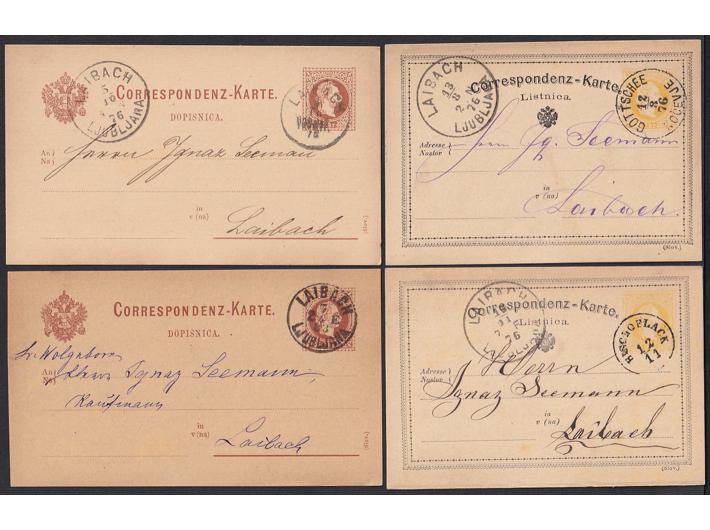 LAIBACH
LJUBLJANA
16
76
CORRESPONDENZ-KARTE.
DOPISNICA.
LAIBACH
76
An
Na
Herrn Ignaz Seeman
in
v (na)
Laibach
(Slov.)
LAIBACH
13
8
76
LJUBLJANA
Correspondenz-Karte.
Listnica.
GOTTSCHEE
12
8
76
KOČEVJE
Adresse
Naslov
Herrn Jg. Seemann
in
v (na)
Laibach.
(Slov.)
CORRESPONDENZ-KARTE.
DOPISNICA.
LAIBACH
LJUBLJANA
An
Na
Herrn Ignaz Seemann,
Kaufmann
in
v (na)
Laibach
(Slov.)
LAIBACH
11
76
LJUBLJANA
Correspondenz-Karte.
Listnica.
BISCHOFLACK
12
11
Adresse
Naslov
Herrn
Ignaz Seemann
in
v (na)
Laibach
(Slov.)